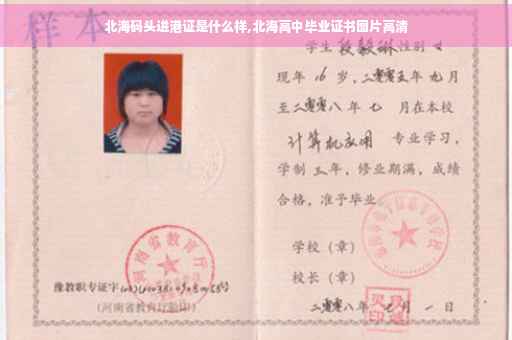 样本
北海码头进港证是什么样,北海高中毕业证书图片高清
学生 段毅琳 性别 女
现年 16 岁,二零零五年九月
至二零零八年七 月在本校
计算机应用 专业学习,
学制三年,修业期满,成绩
合格,准予毕业。
学校(章)
校长(章)
二零零八年 月一日
河南省教育厅
豫教职专证字
(河南省教育厅验印)